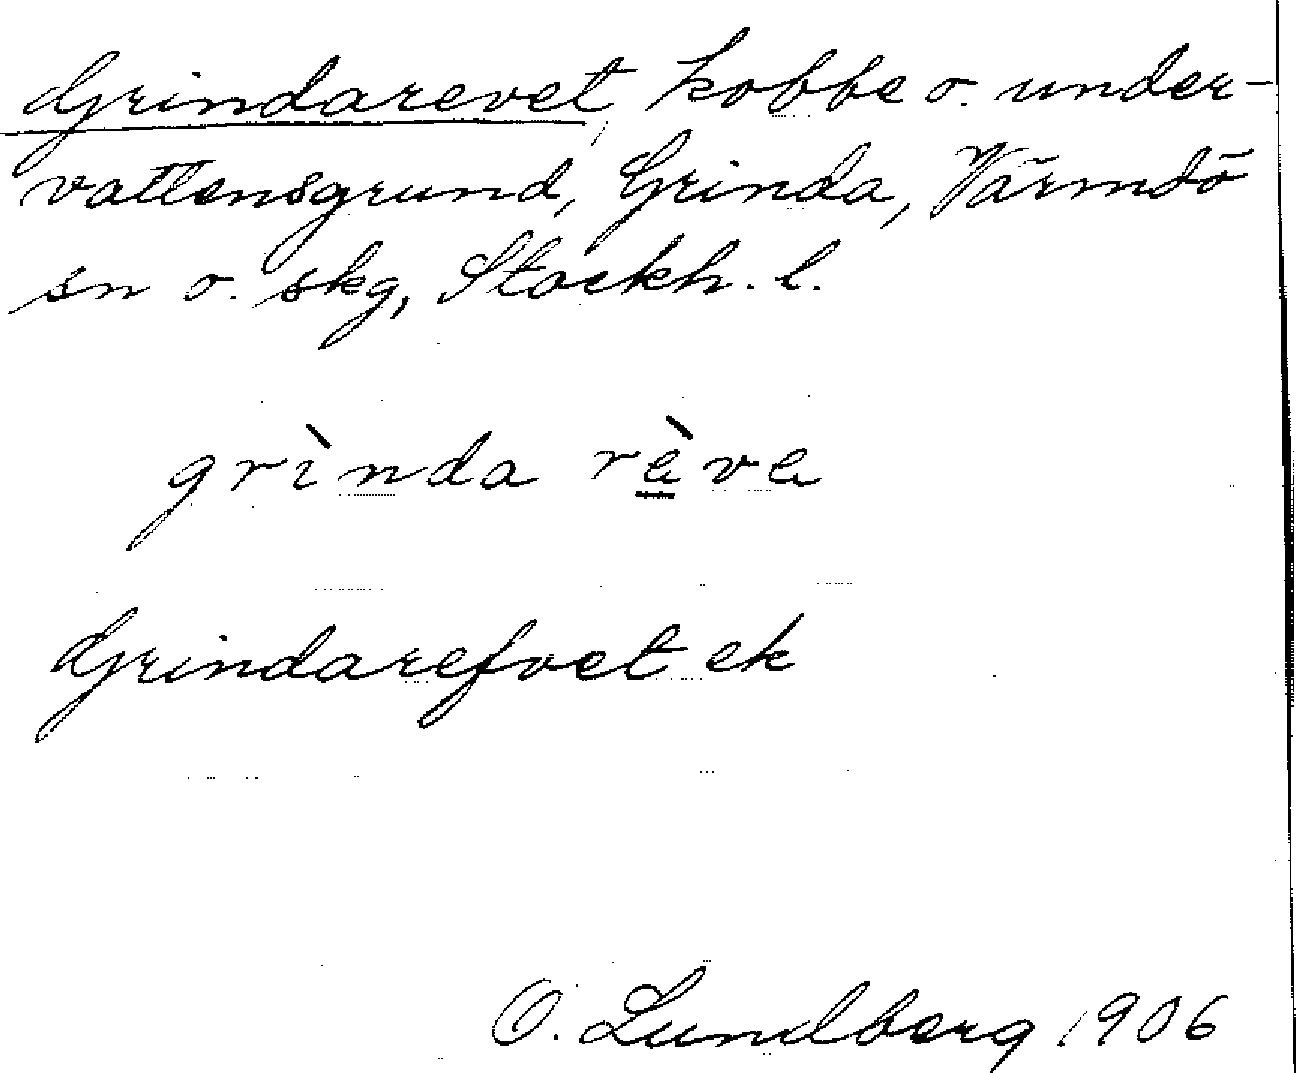 Grindarevet, kobbe o. under-
vattensgrund, Grinda, Värmdö
sn o. skg, Stockh. l.
grìnda rèva
Grindarefvet ek
O. Lundberg 1906